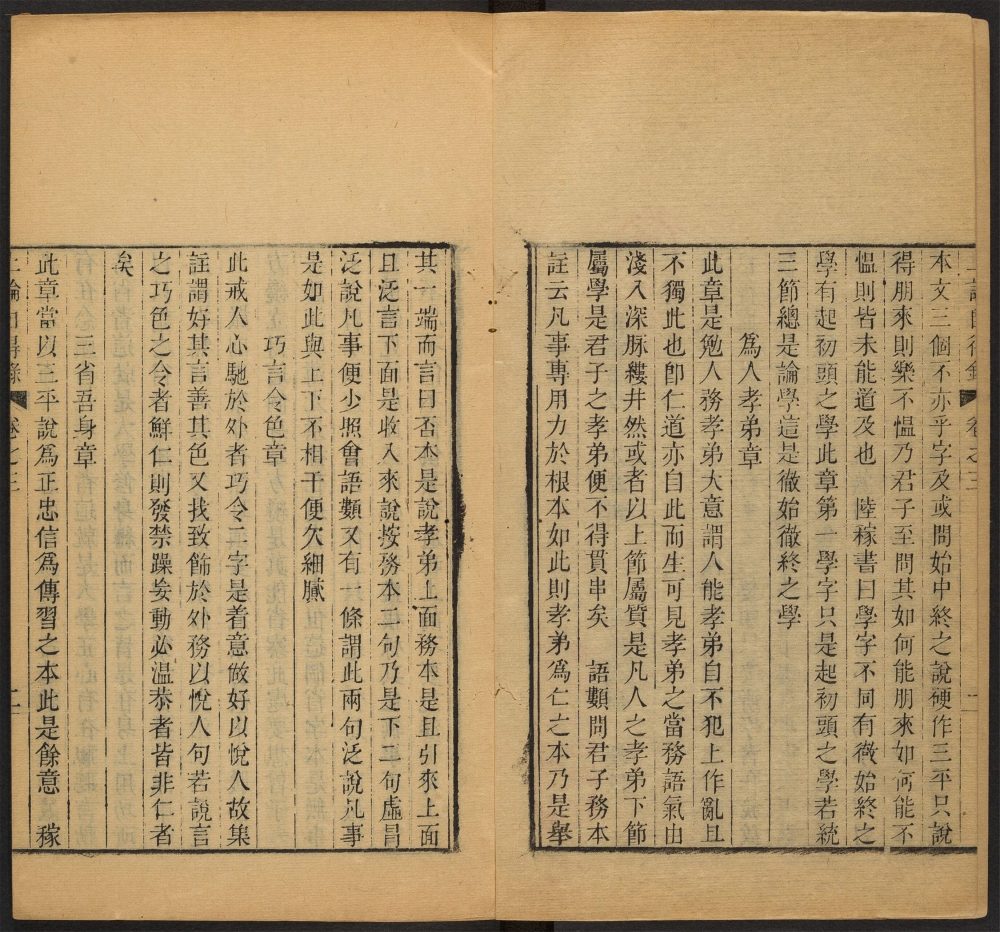 本文三個不亦乎字及或問始中終之說硬作三平只說
得朋來則樂不慍乃君子至問其如何能朋來如何能不
慍則皆未能道及也　陸稼書曰學字不同有徹始終之
學有起初頭之學此章第一學字只是起初頭之學若統
三節總是論學這是徹始徹終之學
爲人孝弟章
此章是勉人務孝弟大意謂人能孝弟自不犯上作亂且
不獨此也卽仁道亦自此而生可見孝弟之當務語氣由
淺入深脉縷井然或者以上節屬質是凡人之孝弟下節
屬學是君子之孝弟便不得貫串矣　語類問君子務本
註云凡事專用力於根本如此則孝弟爲仁之本乃是舉
其一端而言曰否本是說孝弟上面務本是且引來上面
且泛言下面是收入來說按務本二句乃是下二句虛冒
泛說凡事便少照會語類又有一條謂此兩句泛說凡事
是如此與上下不相干便欠細膩
巧言令色章
此戒人心馳於外者巧令二字是着意做好以悅人故集
註謂好其言善其色又找致飾於外務以悅人句若說言
之巧色之令者鮮仁則發禁躁妄動必溫恭者皆非仁者
矣
三省吾身章
此章當以三平說爲正忠信爲傳習之本此是餘意　稼
卷之三
二